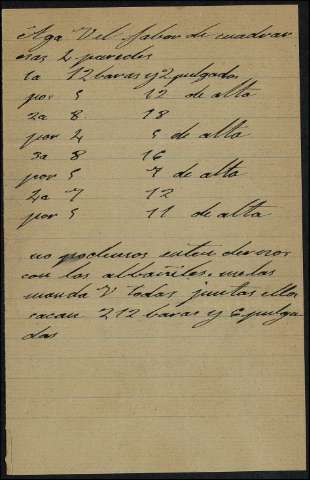 Aga Vd el fabor de cuadrar
esas 4 paredes
1a 12 baras y 2 pulgadas
por 5 12 de alta
2a 8 18
por 4 5 de alta
3a 8 16
por 5 7 de alta
4a 7 12
por 5 11 de alta
no podemos entendernos
con los albañiles, melas
manda V todas juntas ellos
sacan 212 baras y 6 pulga-
das